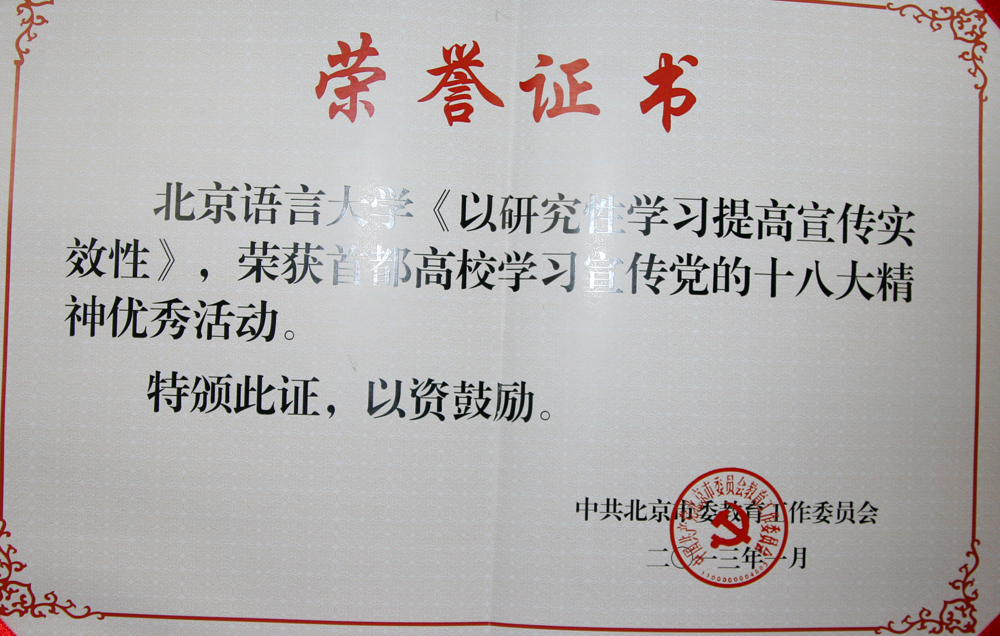 荣誉证书
北京语言大学《以研究性学习提高宣传实
效性》，荣获首都高校学习宣传党的十八大精
神优秀活动。
特颁此证，以资鼓励。
中共北京市委教育工作委员会
二〇一三年一月
中国共产党北京市委员会教育工作委员会